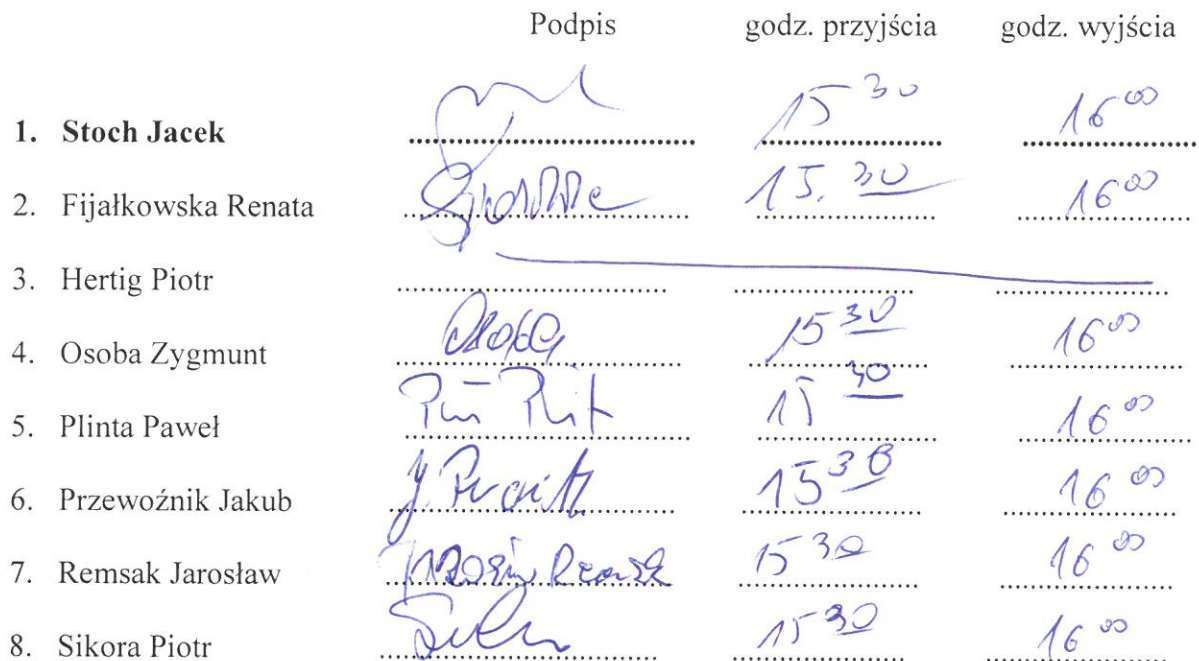 Podpis godz. przyjścia godz. wyjścia
1. Stoch Jacek 15 30 16 00
2. Fijałkowska Renata 15. 30 16 00
3. Hertig Piotr
4. Osoba Zygmunt Osoba 15 30 16 00
5. Plinta Paweł 15 30 16 00
6. Przewoźnik Jakub 15 30 16 00
7. Remsak Jarosław 15 30 16 00
8. Sikora Piotr 15 30 16 00